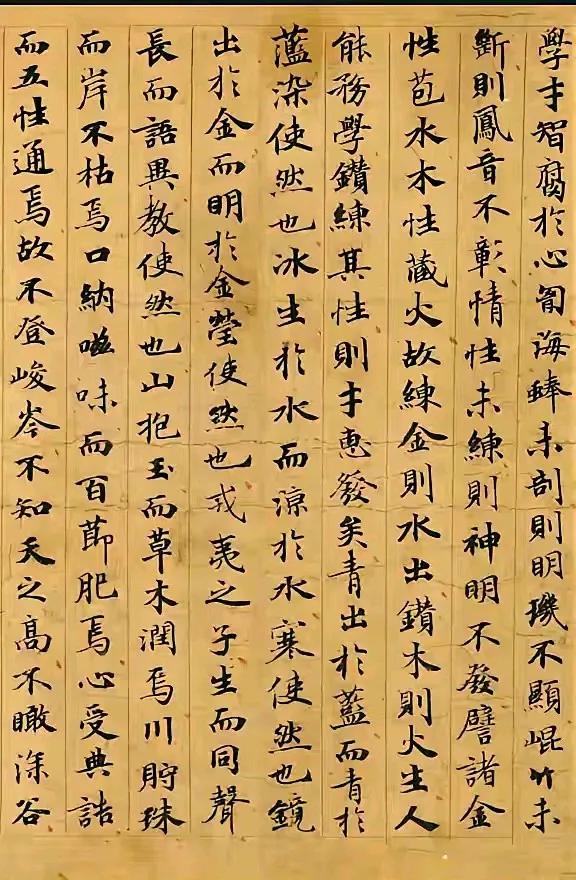 學才智腐於心匈海蜯未剖則明璣不顯崐竹未
斷則鳳音不彰情性未練則神明不發譬諸金
性苞水木性藏火故練金則水出鑽木則火生人
能務學鑽練其性則才惠發矣青出於藍而青於
藍染使然也冰生於水而涼於水寒使然也鏡
出於金而明於金瑩使然也戎夷之子生而同聲
長而語異教使然也山抱玉而草木潤焉川貯珠
而岸不枯焉口納滋味而百節肥焉心受典誥
而五性通焉故不登峻岑不知天之高不瞰深谷